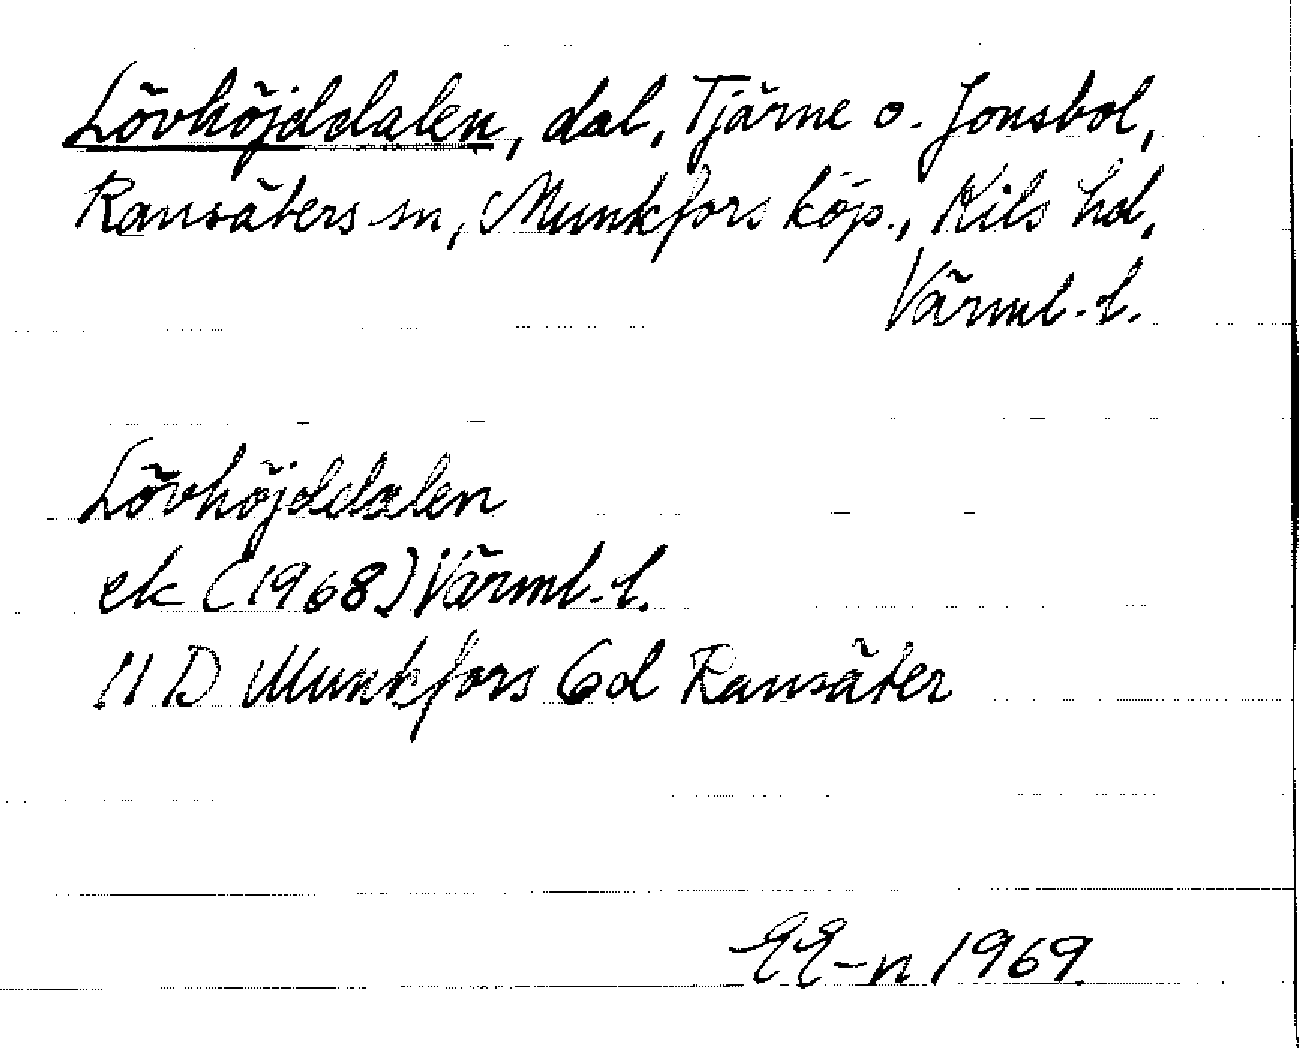 Lövhöjddalen, dal, Tjärne o. Jonsbol,
Ransäters sn, Munkfors köp., Kils hd,
Värml. l.
Lövhöjddalen
ek (1968) Värml. l.
11 D Munkfors 6d Ransäter
EE-n 1969.